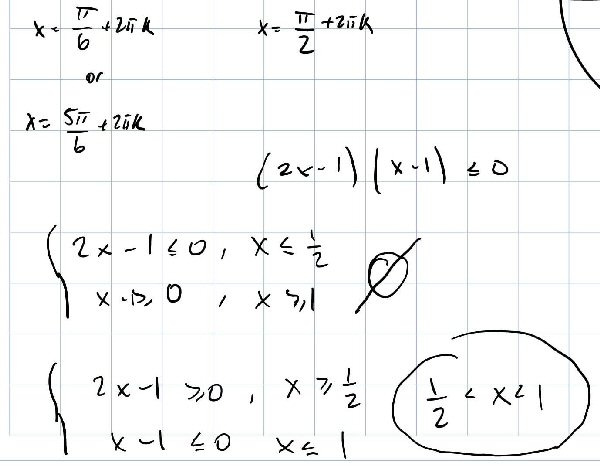 x = π/6 + 2πk
x = π/2 + 2πk
or
x = 5π/6 + 2πk
(2x-1)(x-1) ≤ 0
{ 2x - 1 ≤ 0, x ≤ 1/2
x-1≥ 0, x ≥ 1 ∅
{ 2x-1 ≥ 0, x ≥ 1/2
x-1 ≤ 0 x ≤ 1
1/2 < x < 1